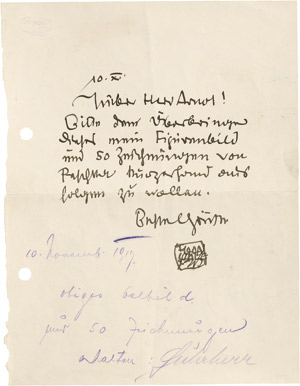 10. XI.
Lieber Herr Arnot!
Bitte dem Überbringer
dieses mein Figurenbild
und 50 Zeichnungen von
kurzerhand aus
folgen zu wollen.
10. Novemb. 1917.
obiges Oelbild
und 50 Zeichnungen
erhalten: